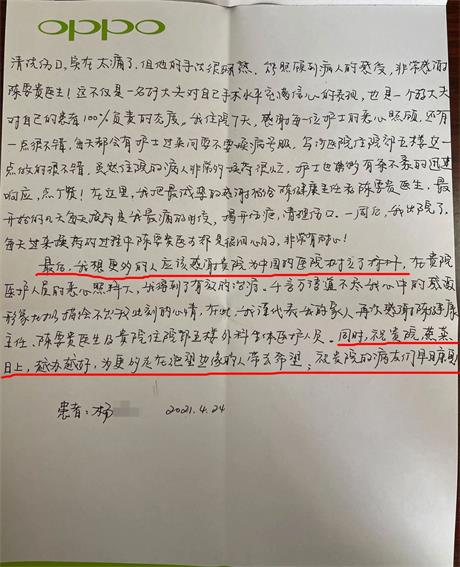 oppo
清洗伤口,实在太痛了,但他的手法很娴熟,能照顾到病人的感受,非常感谢
陈学贵医生!这不仅是一名的大夫对自己手术水平充满信心的表现,也是一个的大夫
对自己的患者100%负责的态度,我住院7天,感谢每一位护士的悉心照顾,还有
一点很不错,每天都会有护士过来问要不要换病号服,
做的很不错,虽然住院的病人非常的
响应,点个赞!在这里,我把最诚挚的感谢献给陈健康主任及陈学贵医生,最
开始的几天每天换药是我最痛的时候,揭开伤疤,清理伤口。一周后,我出院了,
每天过来换药的过程中陈学贵医生都是很细心的,非常有耐心!
最后,我想更多的人应该感谢贵院为中国的医院树立了榜样,在贵院
医护人员的悉心照料下,我得到了有效的治疗,千言万语道不尽我心中的感激
形象尤如描绘不出我此刻的心情,在此,我谨代表我的家人再次感谢陈健康
主任、陈学贵医生及贵院住院部五楼外科全体医护人员。同时,祝贵院蒸蒸
日上,越办越好,为更多走在绝望边缘的人带去希望;祝贵院的病友们早日康复
患者:杨 2021.4.24